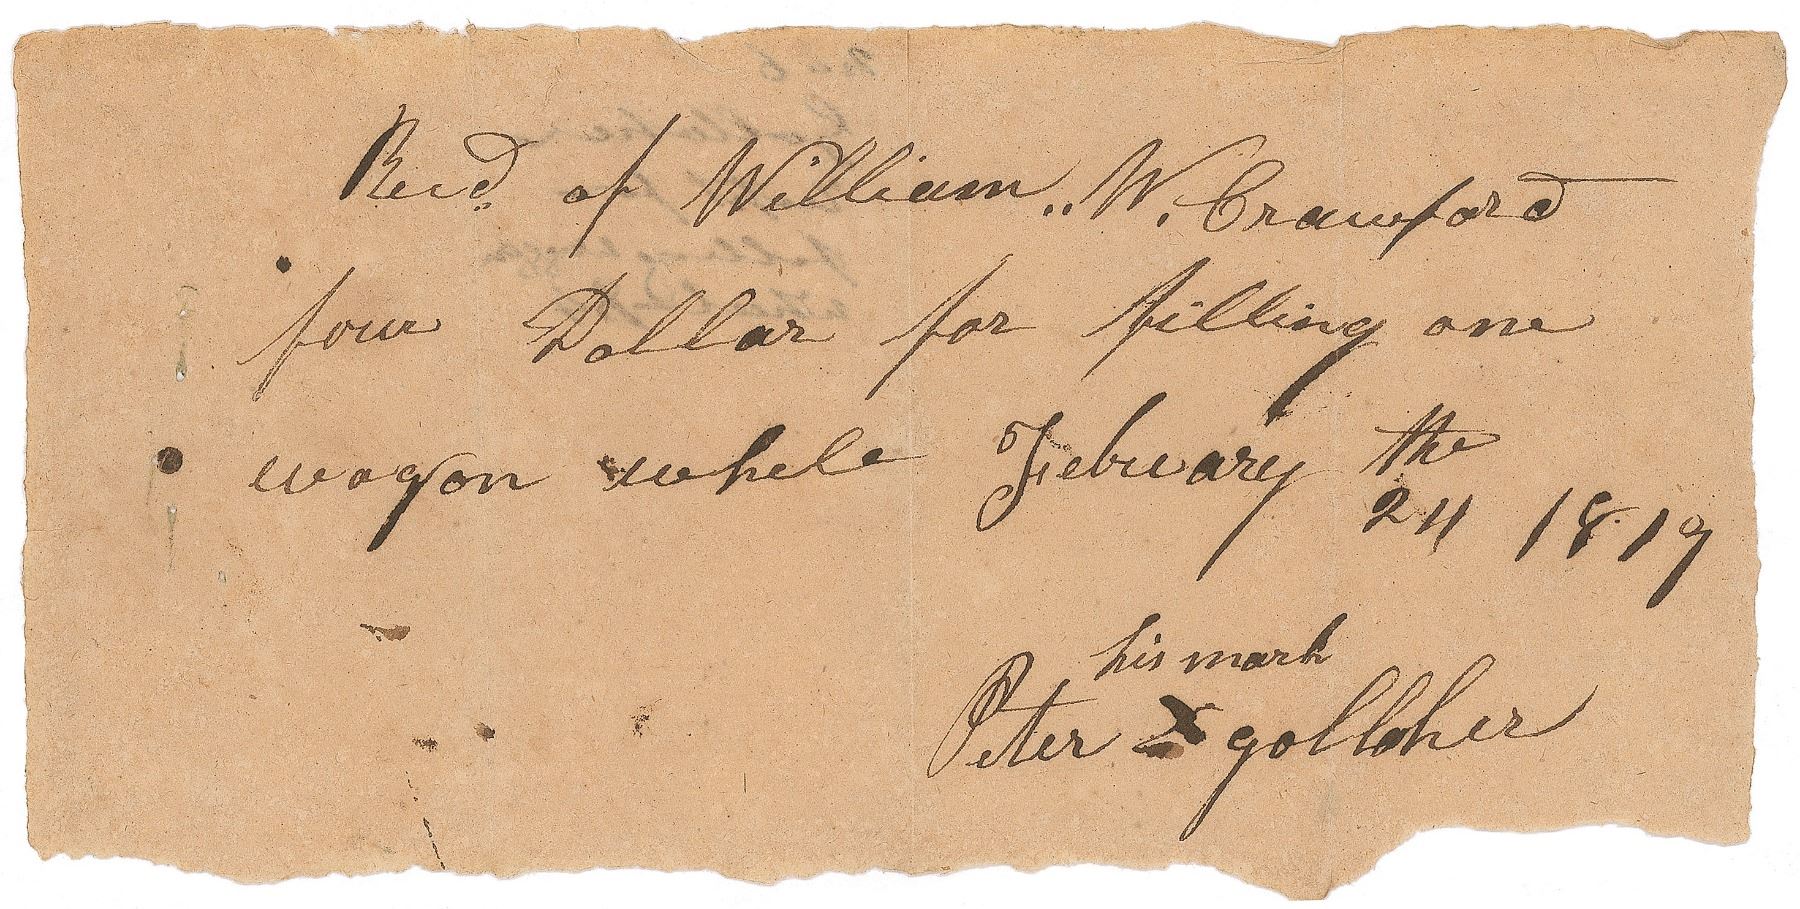 Recd. of William W. Crawford
four Dollar for filling one
wagon whele Febuary the
24 1819
his mark
Peter X gollaher